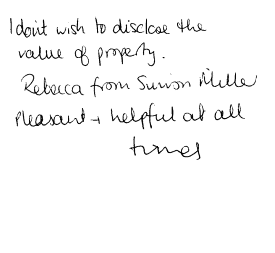 I don't wish to disclose the
value of property.
Rebecca from Simon Miller
pleasant + helpful at all
times